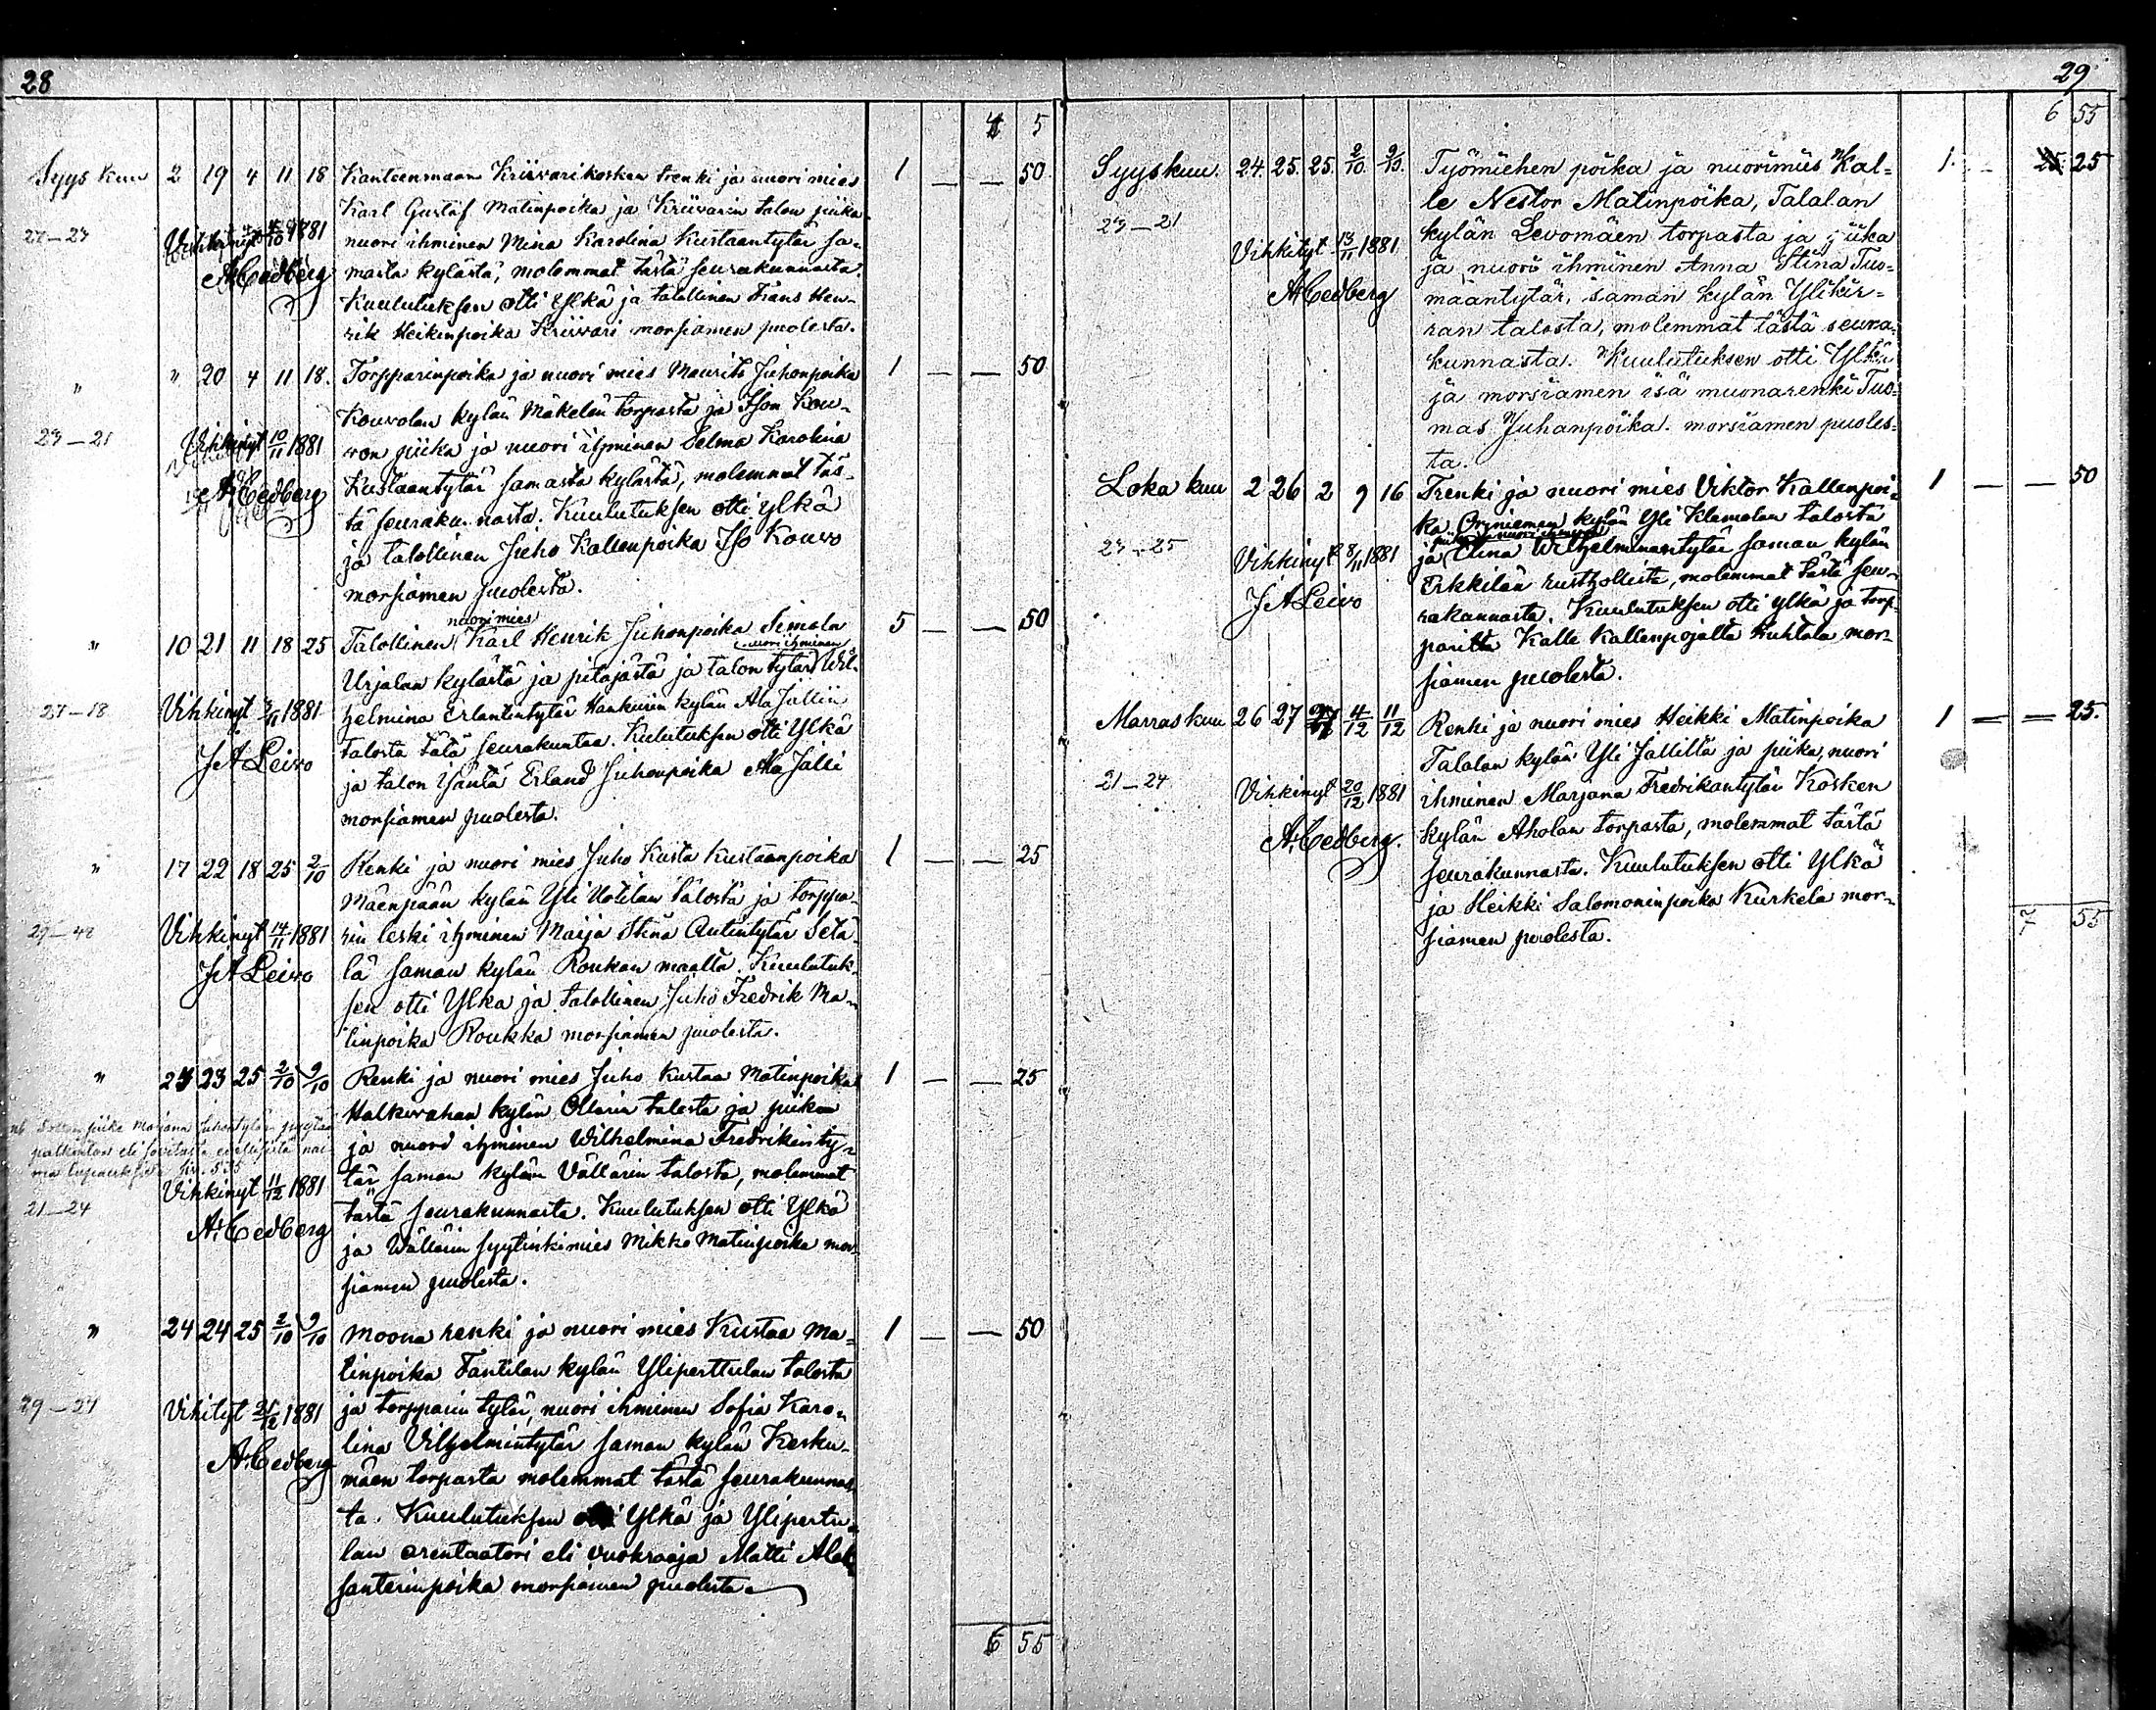 28
4 5
Syys kuu 2 19 4 11 18 Kanteenmaan Kriivarikosken trenki ja nuori mies 1 — — 50
Karl Gustaf Matinpoika ja Kriivarin talon piika
27–23 1881 nuori ihminen Mina Karolina Kustaantytär sa-
A. Cedberg masta kylästä, molemmat tästä seurakunnasta.
Kuulutuksen otti Ylkä ja talollinen Frans Hen-
rik Heikinpoika Kriivari morsiamen puolesta.
" " 20 4 11 18. Torpparinpoika ja nuori mies Maurits Juhonpoika 1 — — 50
Kouvolan kylän Mäkelän torpasta ja Ison Kou-
23–21 Vihkinyt 10/11 1881 von piika ja nuori ihminen Selma Karolina
A. Cedberg Kustaantytär samasta kylästä, molemmat täs-
tä seurakunnasta. Kuulutuksen otti ylkä
ja talollinen Juho Kallenpoika Iso Kouvo
morsiamen puolesta.
nuori mies
" 10 21 11 18 25 Talollinen Karl Henrik Juhonpoika Simola 5 — — 50
nuori ihminen
Urjalan kylästä ja pitäjästä ja talon tytär Wil-
27–18 Vihkinyt 1881 helmina Erlantintytär Hankurin kylän Ala Jallin
talosta tätä seurakuntaa. Kulutuksen otti Ylkä
J A Leivo ja talon Isäntä Erland Juhonpoika Ala Jalli
morsiamen puolesta.
" 17 22 18 25 2/10 Renki ja nuori mies Juho Kusta Kustaanpoika 1 — — 25
Mäenpään kylän Yli Uotilan talosta ja torppa-
29–42 Vihkinyt 14/11 1881 rin leski ihminen Maija Stina Antintytär Setä-
J A Leivo lä saman kylän Roukan maalta. Kuulutuk-
sen otti Ylka ja talollinen Juho Fredrik Ma-
tinpoika Roukka morsiamen puolesta.
" 23 23 25 2/10 9/10 Renki ja nuori mies Juho Kustaa Matinpoika 1 — — 25
Halkivahan kylän Ollarin talosta ja piika
ja nuori ihminen Wilhelmina Fredrikinty-
Vihkinyt 11/12 1881 tär saman kylän Vällärin talosta, molemmat
21–24 tästä seurakunnasta. Kuulutuksen otti Ylkä
A. Cedberg ja Wällärin syytinkimies Mikko Matinpoika mor-
siamen puolesta.
" 24 24 25 2/10 9/10 Moona renki ja nuori mies Kustaa Ma- 1 — — 50
tinpoika Tantilan kylän Yliperttulan talosta
29–27 Vihityt 26/12 1881 ja torpparin tytär, nuori ihminen Sofia Karo-
lina Vilhelmintytär saman kylän Kesku-
A. Cedberg mäen torpasta molemmat tästä seurakunnas-
ta. Kuulutuksen otti Ylkä ja Ylipertu-
lan arentaatori eli vuokraaja Matti Alek
santerinpoika morsiamen puolesta.
6 55
29
6 55
Syyskuu. 24. 25. 25. 2/10. 9/10. Työmiehen poika ja nuorimies Kal- 1. — 25
le Nestor Matinpoika, Talalan
23–21 kylän Levomäen torpasta ja piika
Vihkityt 13/11 1881 ja nuori ihminen Anna Stina Tuo-
A. Cedberg määntytär, saman kylän Ylikir-
ran talosta, molemmat tästä seura-
kunnasta. Kuulutuksen otti Ylkä
ja morsiamen isä muonarenki Tuo-
mas Juhanpoika. morsiamen puoles-
ta.
Loka kuu 2 26 2 9 16 Trenki ja nuori mies Viktor Kallenpoi- 1 — — 50
ka Orjniemen kylän Yli Klemolan talosta
piika ja nuori ihminen
23–25 Vihkinyt 8/11 1881 ja Elina Wilhelminantytär saman kylän
Erkkilän rusthollista, molemmat tästä seu-
J A Leivo rakunnasta. Kuulutuksen otti ylkä ja torp-
parilta Kalle Kallenpojalta Huhtala mor-
siamen puolesta.
Marras kuu 26 27 27 4/12 11/12 Renki ja nuori mies Heikki Matinpoika 1 — — 25.
Talalan kylän Yli Jallilta ja piika, nuori
21–24 Vihkinyt 20/12 1881 ihminen Marjana Fredrikantytär Kosken
A. Cedberg. kylän Aholan torpasta, molemmat tästä
seurakunnasta. Kuulutuksen otti Ylkä
ja Heikki Salomoninpoika Kurkela mor-
siamen puolesta.
7 55